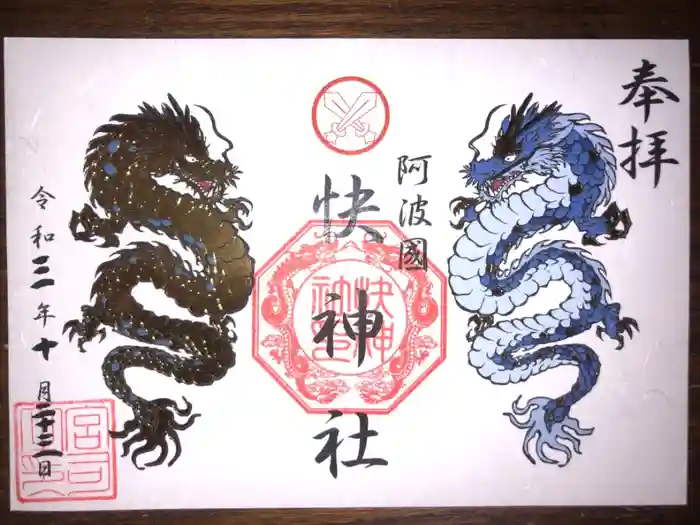 奉拝
阿波國
快神社
快神社印
令和三年十月二十二日